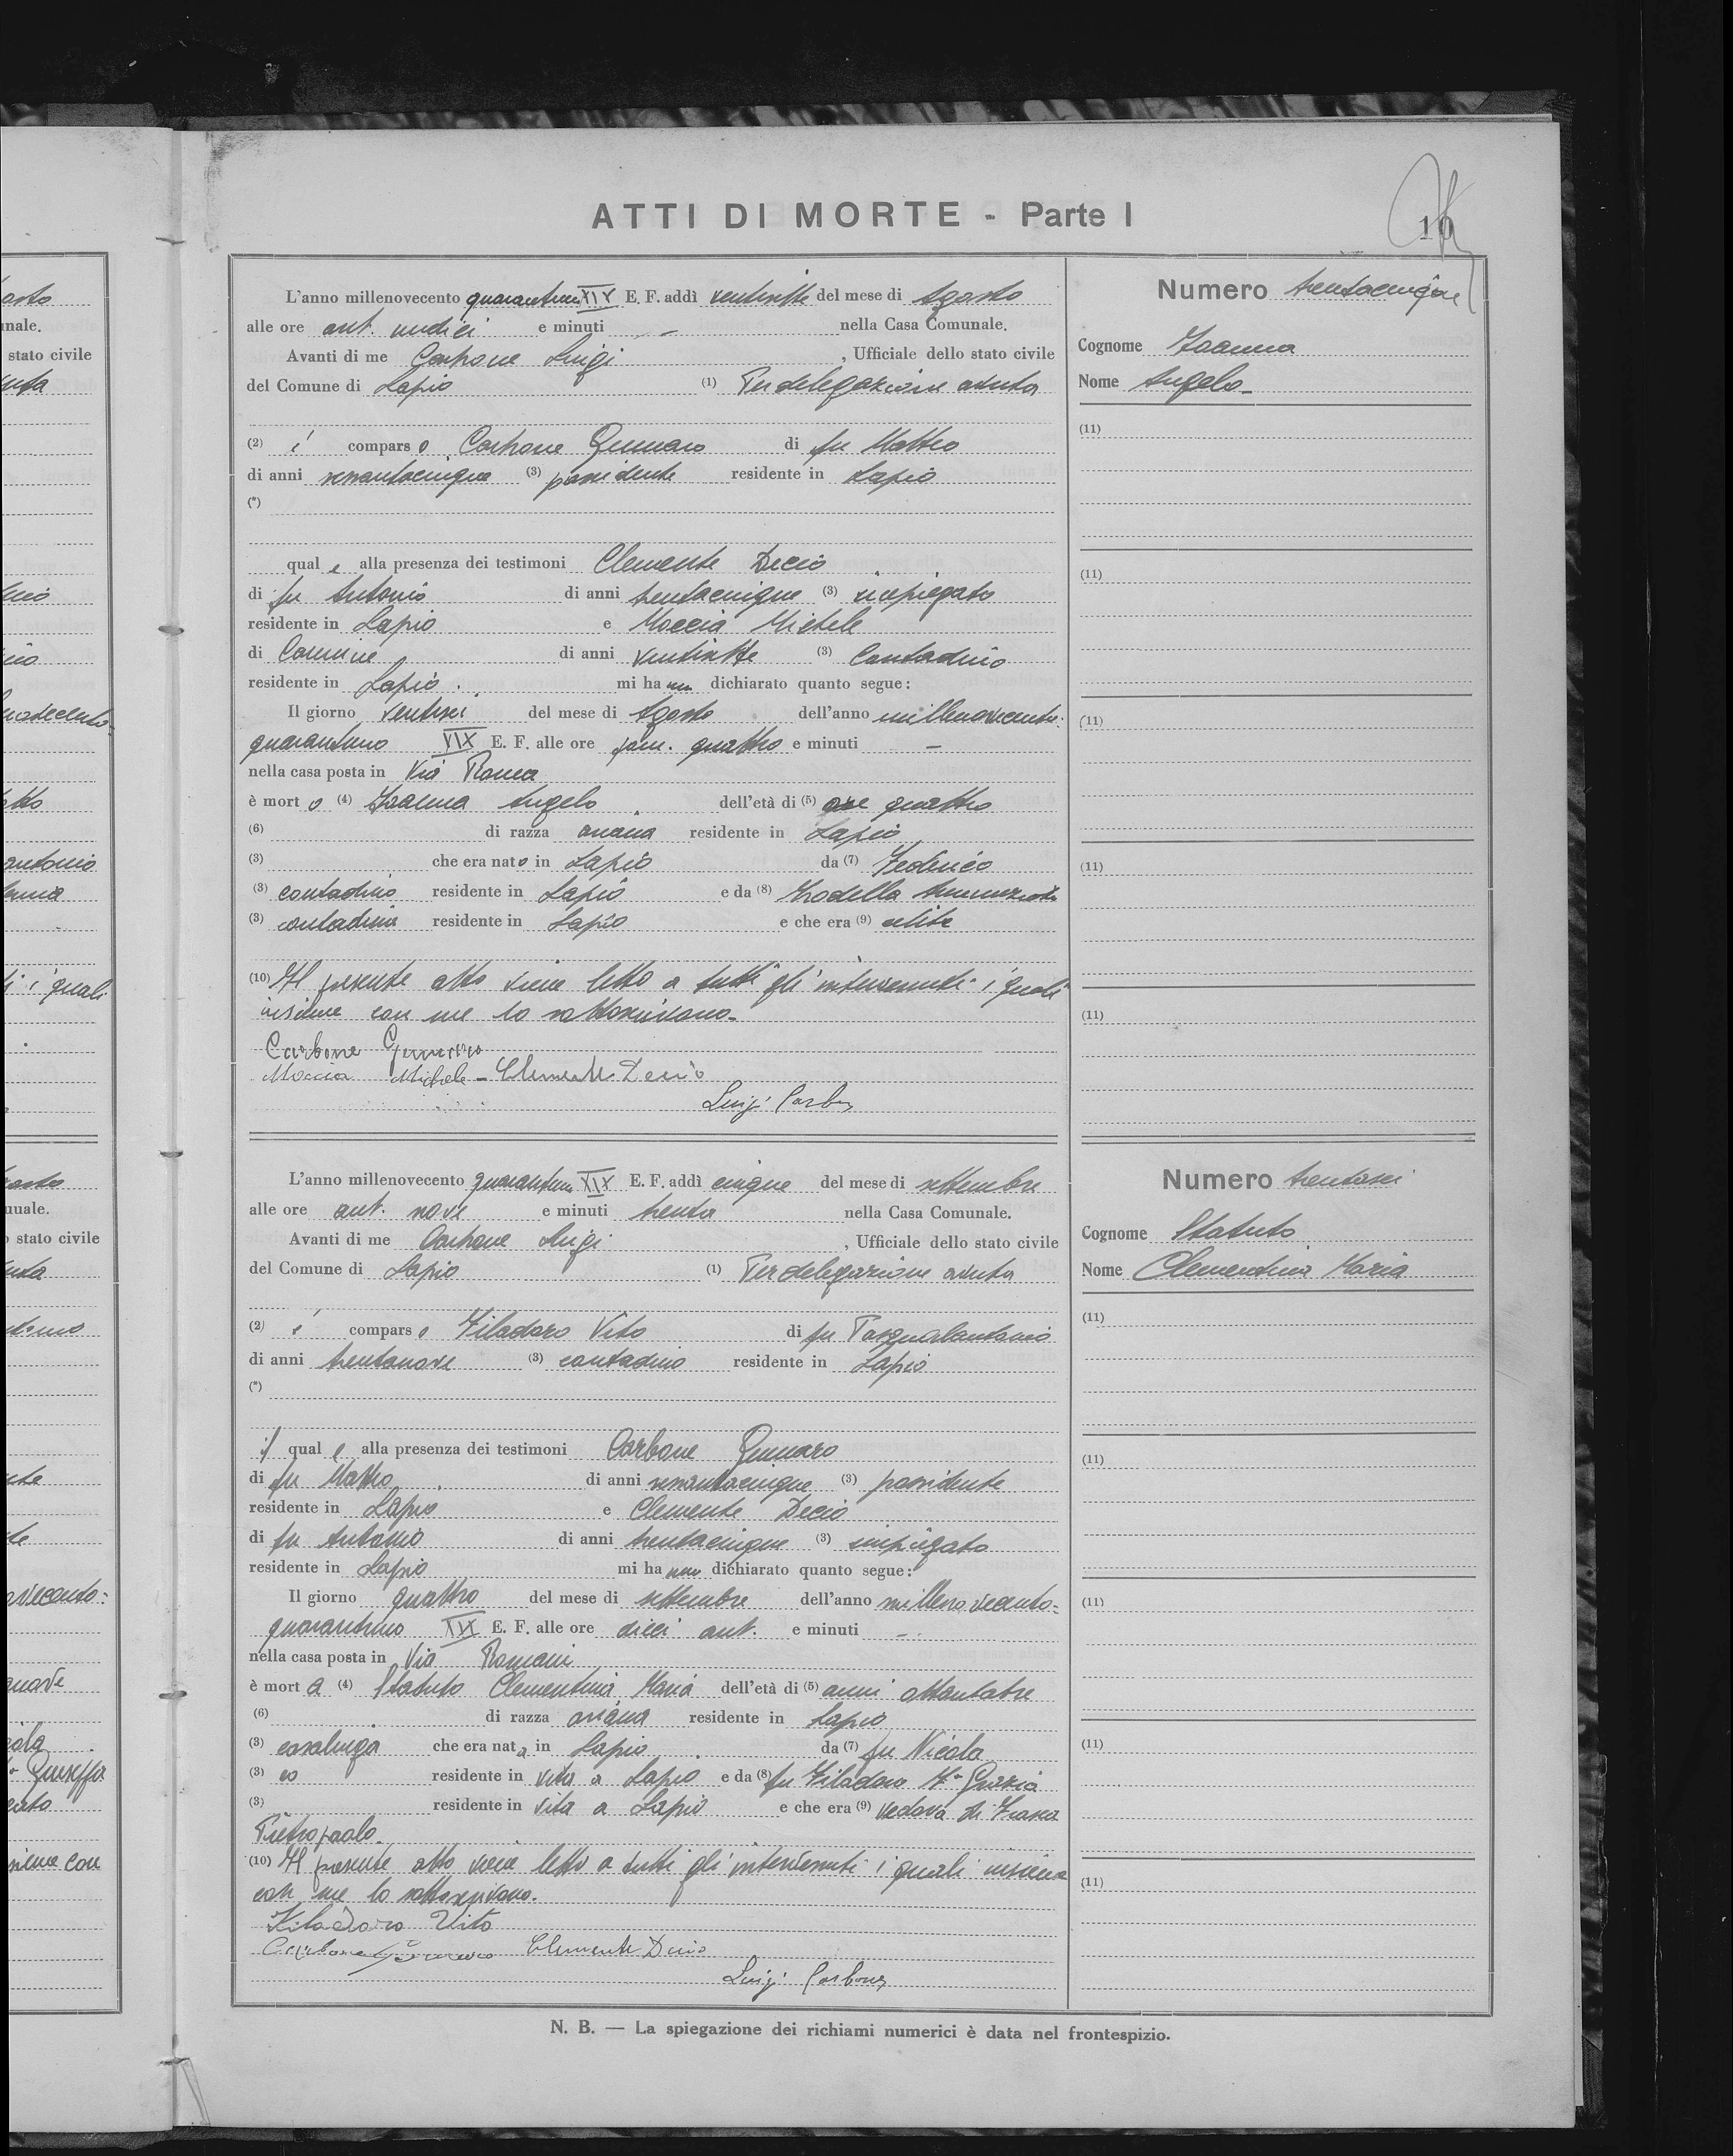 asto
nale.
stato civile
uta
antonio
i quali
ATTI DI MORTE - Parte I
10
L'anno millenovecento quarantuno XIX E. F. addì ventisette del mese di Agosto
alle ore ant. undici e minuti - nella Casa Comunale.
Avanti di me Carbone Luigi, Ufficiale dello stato civile
del Comune di Lapio (1) Per delegazione avuta
(2) è compars o Carbone Gennaro di fu Matteo
di anni sessantacinque (3) possidente residente in Lapio
(*)
qual e alla presenza dei testimoni Clemente Decio
di fu Antonio di anni trentacinque (3) impiegato
residente in Lapio e Moccia Michele
di Carmine di anni ventisette (3) Contadino
residente in Lapio. mi ha nno dichiarato quanto segue:
Il giorno ventisei del mese di Agosto dell'anno millenovecento:
quarantuno XIX E. F. alle ore pom. quattro e minuti -
nella casa posta in Via Roma
è mort o (4) Angelo dell'età di (5) ore quattro
(6) di razza ariana residente in Lapio
(3) che era nat o in Lapio da (7) Federico
(3) contadino residente in Lapio e da (8) Annunziata
(3) contadina residente in Lapio e che era (9) celibe
(10) Il presente atto viene letto a tutti gli intervenuti i quali
insieme con me lo sottoscrivono.
Carbone Gennaro
Moccia Michele - Clemente Decio
Luigi Carbone
Numero trentacinque
Cognome
Nome Angelo
(11)
(11)
(11)
(11)
(11)
L'anno millenovecento quarantuno XIX E. F. addì cinque del mese di settembre
alle ore ant. nove e minuti trenta nella Casa Comunale.
Avanti di me Carbone Luigi, Ufficiale dello stato civile
del Comune di Lapio (1) Per delegazione avuta
(2) è compars o Filadoro Vito di fu Pasqualantonio
di anni trentanove (3) contadino residente in Lapio
(*)
il qual e alla presenza dei testimoni Carbone Gennaro
di fu Matteo di anni sessantacinque (3) possidente
residente in Lapio e Clemente Decio
di fu Antonio di anni trentacinque (3) impiegato
residente in Lapio mi ha nno dichiarato quanto segue:
Il giorno quattro del mese di settembre dell'anno millenovecento=
quarantuno XIX E. F. alle ore dieci ant. e minuti -
nella casa posta in Via Romani
è mort a (4) Statuto Clementina Maria dell'età di (5) anni ottantatre
(6) di razza ariana residente in Lapio
(3) casalinga che era nat a in Lapio da (7) fu Nicola
(3) residente in vita a Lapio e da (8) fu Filadoro Ma Grazia
(3) residente in vita a Lapio e che era (9) vedova di
Pietropaolo.
(10) Il presente atto viene letto a tutti gli intervenuti i quali insieme
con me lo sottoscrivono.
Filadoro Vito
Carbone Gennaro Clemente Decio
Luigi Carbone
Numero trentasei
Cognome Statuto
Nome Clementina Maria
(11)
(11)
(11)
(11)
(11)
N. B. — La spiegazione dei richiami numerici è data nel frontespizio.